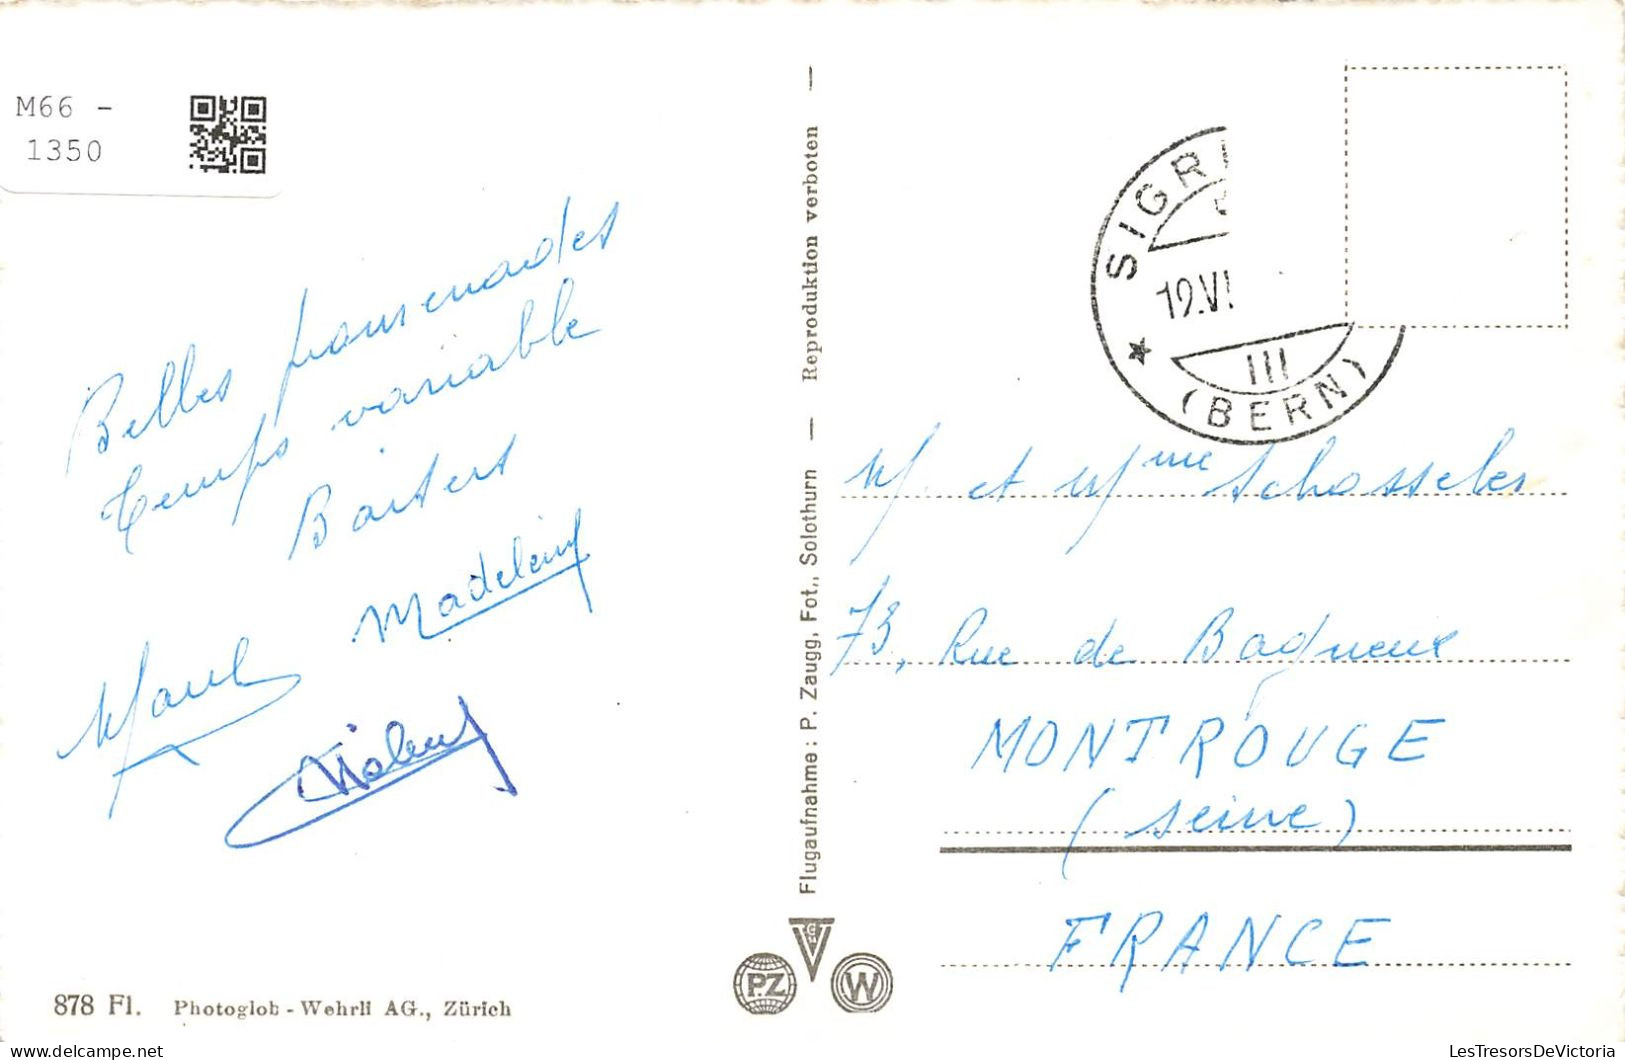 M66 -
1350
Belles promenades
temps variable
Baisers
Madeleine
878 Fl. Photoglob - Wehrli AG., Zürich
Flugaufnahme: P. Zaugg, Fot., Solothurn — Reproduktion verboten —
PZ
W
SIGRI
19.VI
III
(BERN)
M. et Mme Schosseler
73, Rue de Bagneux
MONTROUGE
(Seine)
FRANCE
LesTresorsDeVictoria